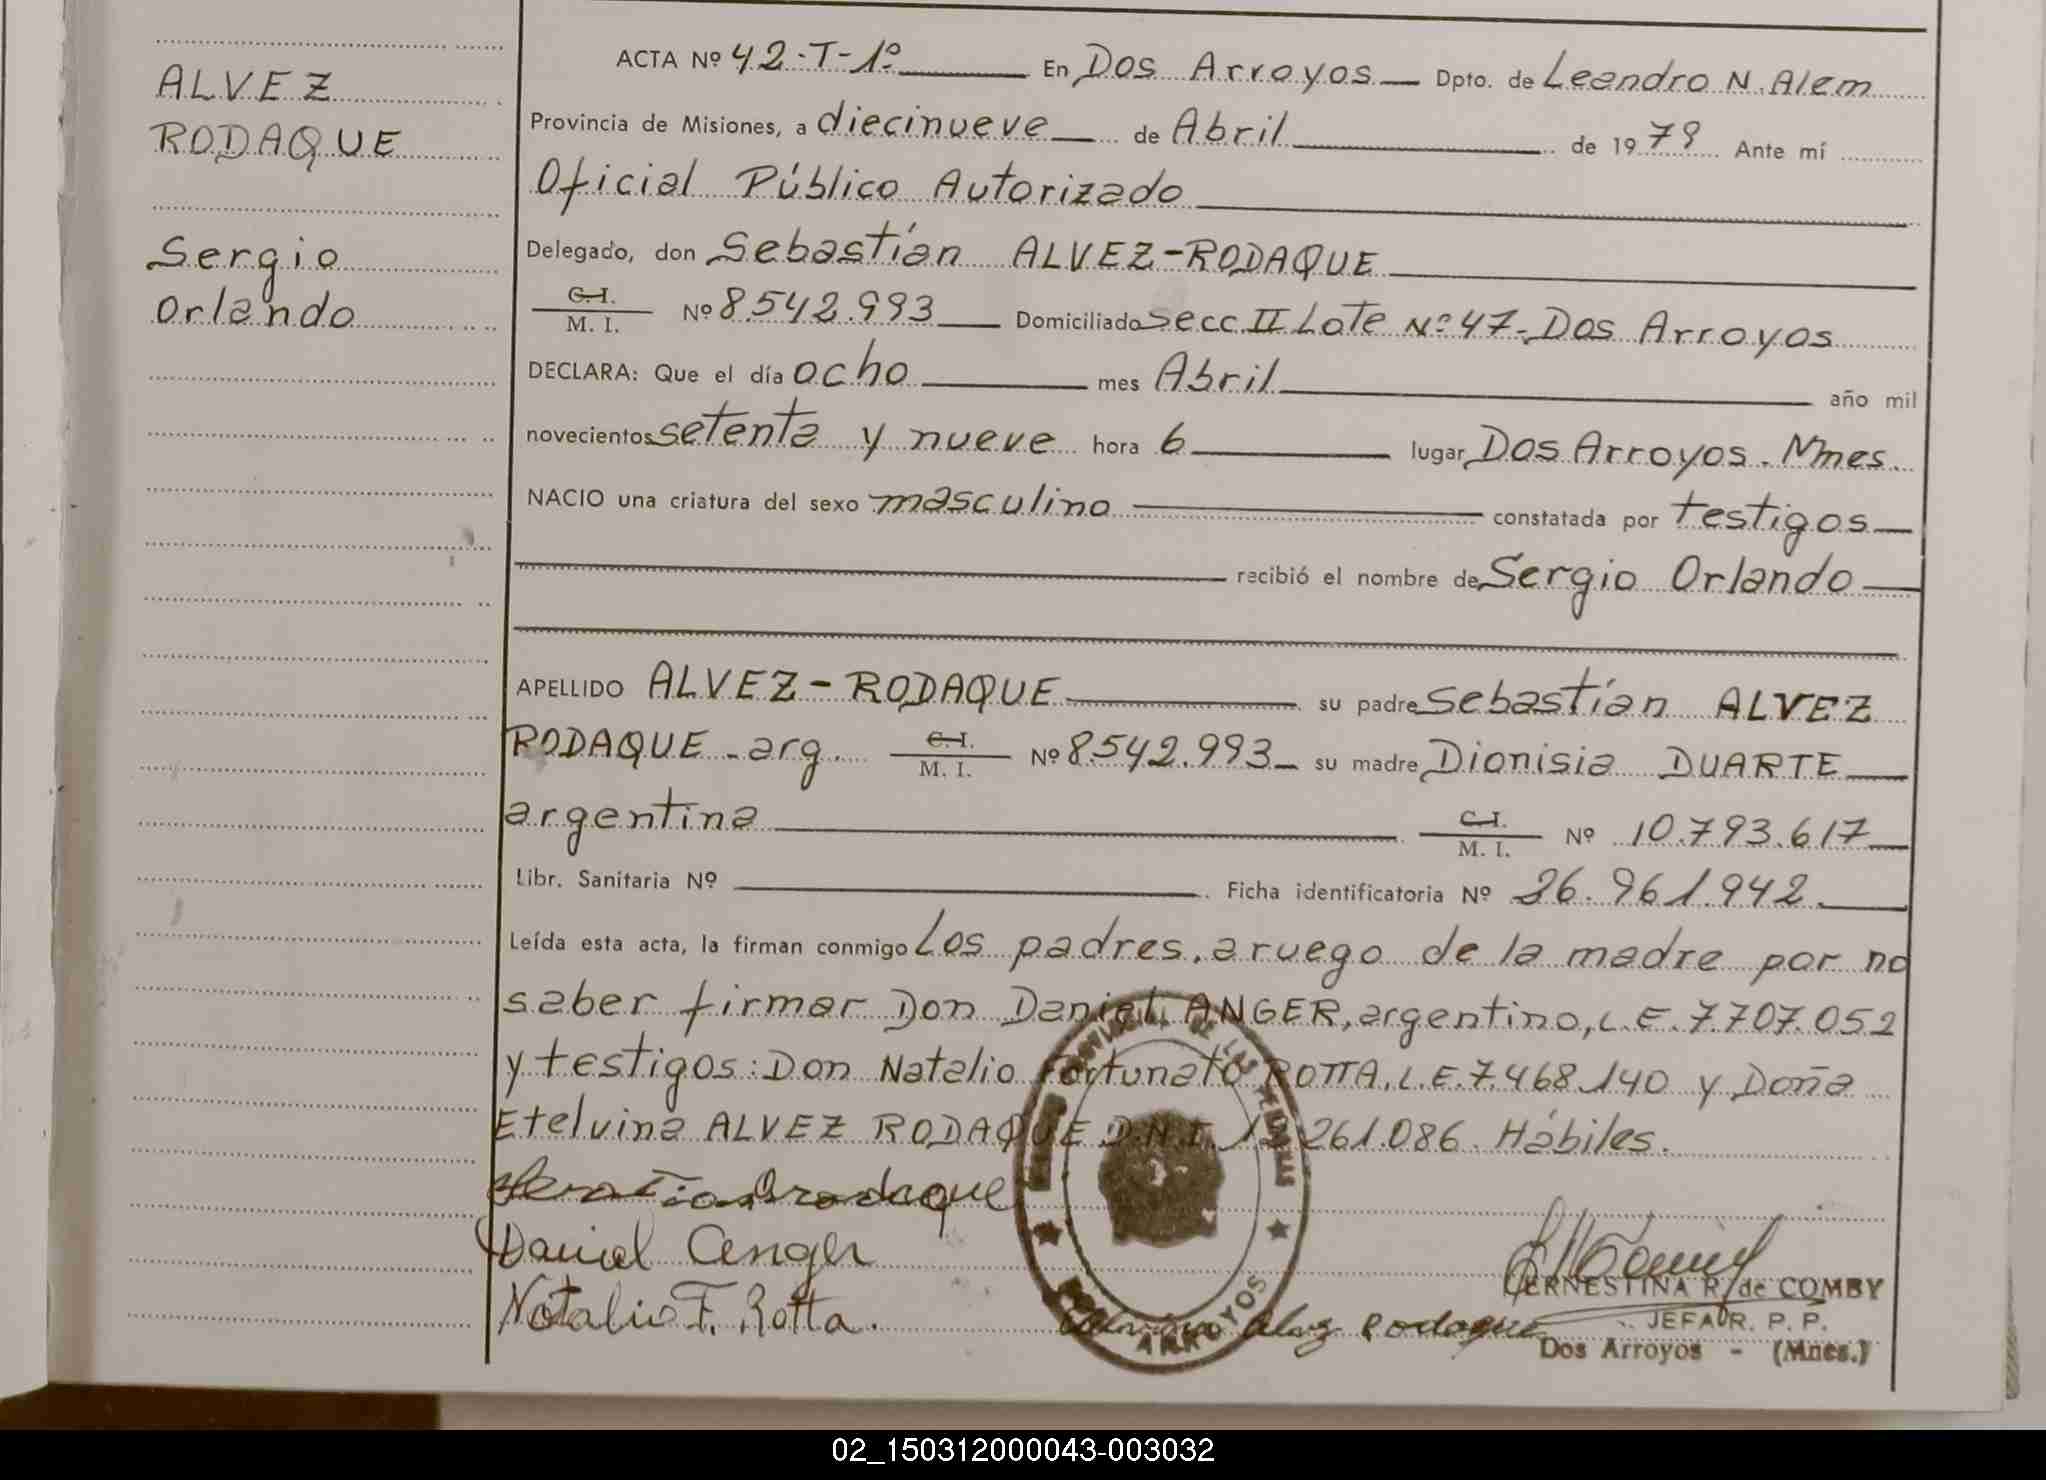 ALVEZ
RODAQUE
Sergio
Orlando
ACTA Nº 42-T-1º En Dos Arroyos Dpto. de Leandro N. Alem
Provincia de Misiones, a diecinueve de Abril de 1979 Ante mí
Oficial Público Autorizado
Delegado, don Sebastían ALVEZ-RODAQUE
C.I.
M. I. Nº 8.542.993 Domiciliado Secc. II Lote Nº 47- Dos Arroyos
DECLARA: Que el día ocho mes Abril año mil
novecientos setenta y nueve hora 6 lugar Dos Arroyos. Mnes.
NACIO una criatura del sexo masculino constatada por testigos
recibió el nombre de Sergio Orlando
APELLIDO ALVEZ-RODAQUE su padre Sebastían ALVEZ
RODAQUE - arg. C.I. M. I. Nº 8.542.993 su madre Dionisia DUARTE
argentina C.I. M. I. Nº 10.793.617
Libr. Sanitaria Nº Ficha identificatoria Nº 26.961.942.
Leída esta acta, la firman conmigo Los padres, a ruego de la madre por no
saber firmar Don Daniel ANGER, argentino, L.E. 7.707.052
y testigos: Don Natalio Fortunato ROTTA, L.E. 7.468.140 y Doña
Etelvina ALVEZ RODAQUE D.N.I. 261.086. Hábiles.
Daniel Anger
Natalio F. Rotta.
Alvez Rodaque
ARROYOS
ERNESTINA R. de COMBY
JEFA R. P. P.
Dos Arroyos - (Mnes.)
02_150312000043-003032